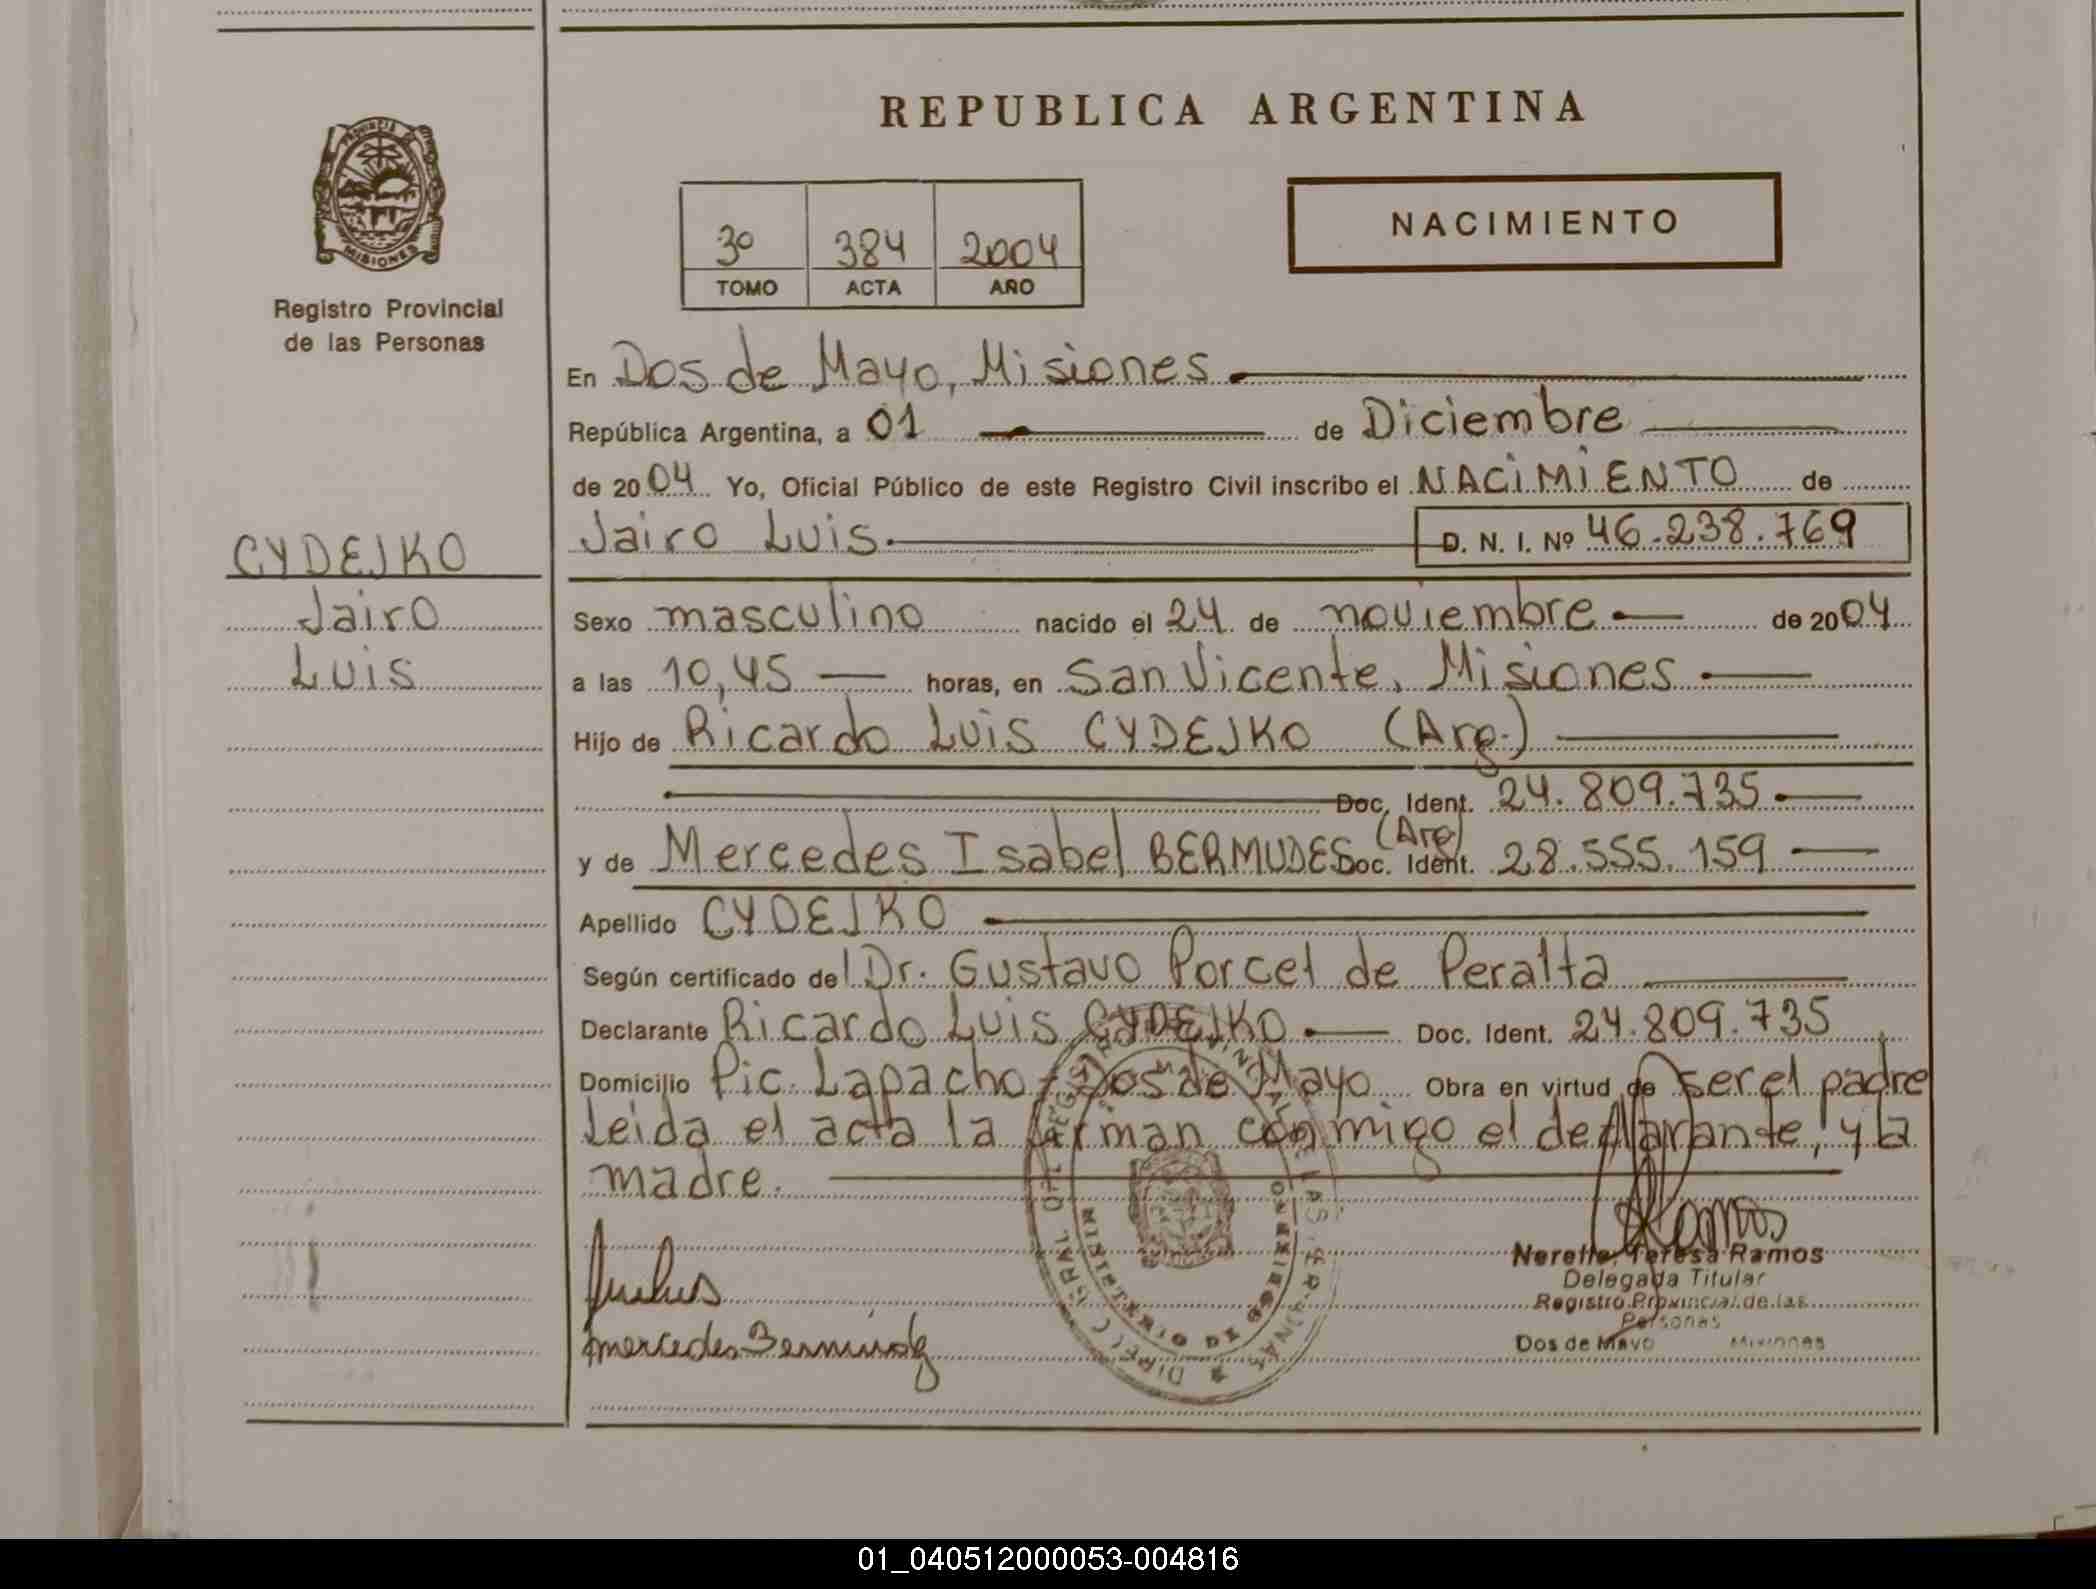 REPUBLICA ARGENTINA
PROVINCIA DE
MISIONES
Registro Provincial
de las Personas
3º 384 2004
TOMO ACTA AÑO
NACIMIENTO
En Dos de Mayo, Misiones
República Argentina, a 01 de Diciembre
de 2004 Yo, Oficial Público de este Registro Civil inscribo el NACIMIENTO de
Jairo Luis D. N. I. Nº 46.238.769
CYDEJKO
Jairo
Luis
Sexo masculino nacido el 24 de noviembre de 2004
a las 10,45 horas, en San Vicente, Misiones
Hijo de Ricardo Luis CYDEJKO (Arg.)
Doc. Ident. 24.809.735
y de Mercedes Isabel BERMUDES (Arg) Doc. Ident. 28.555.159
Apellido CYDEJKO
Según certificado del Dr. Gustavo Porcel de Peralta
Declarante Ricardo Luis CYDEJKO Doc. Ident. 24.809.735
Domicilio Pic. Lapacho, Dos de Mayo Obra en virtud de ser el padre
Leida el acta la firman conmigo el declarante, y la
madre.
Ramos
Teresa Ramos
Delegada Titular
Registro Provincial de las
Personas
Dos de Mayo Misiones
mercedes
01_040512000053-004816